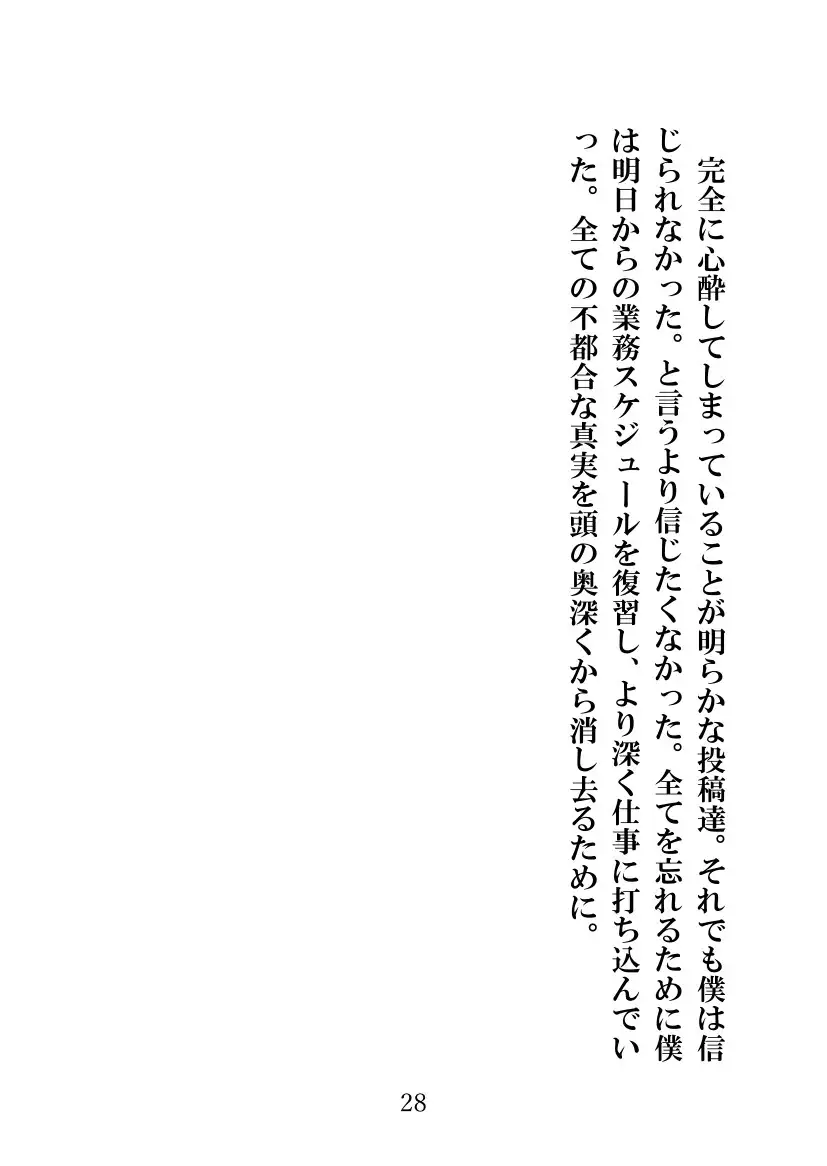 完全に心酔してしまっていることが明らかな投稿達。それでも僕は信
じられなかった。と言うより信じたくなかった。全てを忘れるために僕
は明日からの業務スケジュールを復習し、より深く仕事に打ち込んでい
った。全ての不都合な真実を頭の奥深くから消し去るために。
28